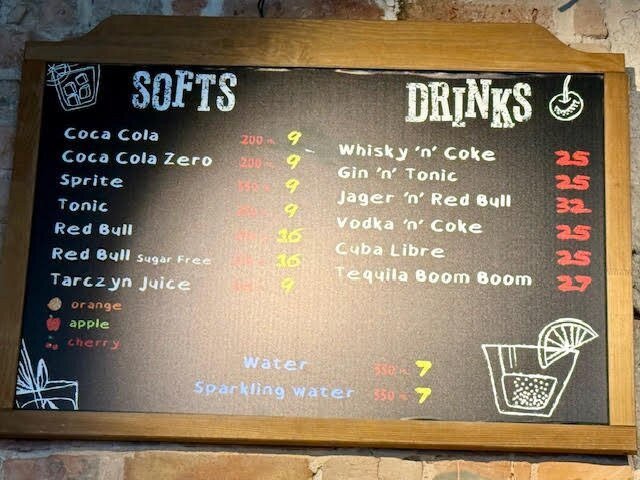 SOFTS
Coca Cola 200 9
Coca Cola Zero 200 9
Sprite 9
Tonic 9
Red Bull 16
Red Bull Sugar Free 16
Tarczyn Juice 9
orange
apple
cherry
DRINKS
Whisky 'n' Coke 25
Gin 'n' Tonic 25
Jager 'n' Red Bull 32
Vodka 'n' Coke 25
Cuba Libre 25
Tequila Boom Boom 27
Water 330 7
Sparkling water 330 7